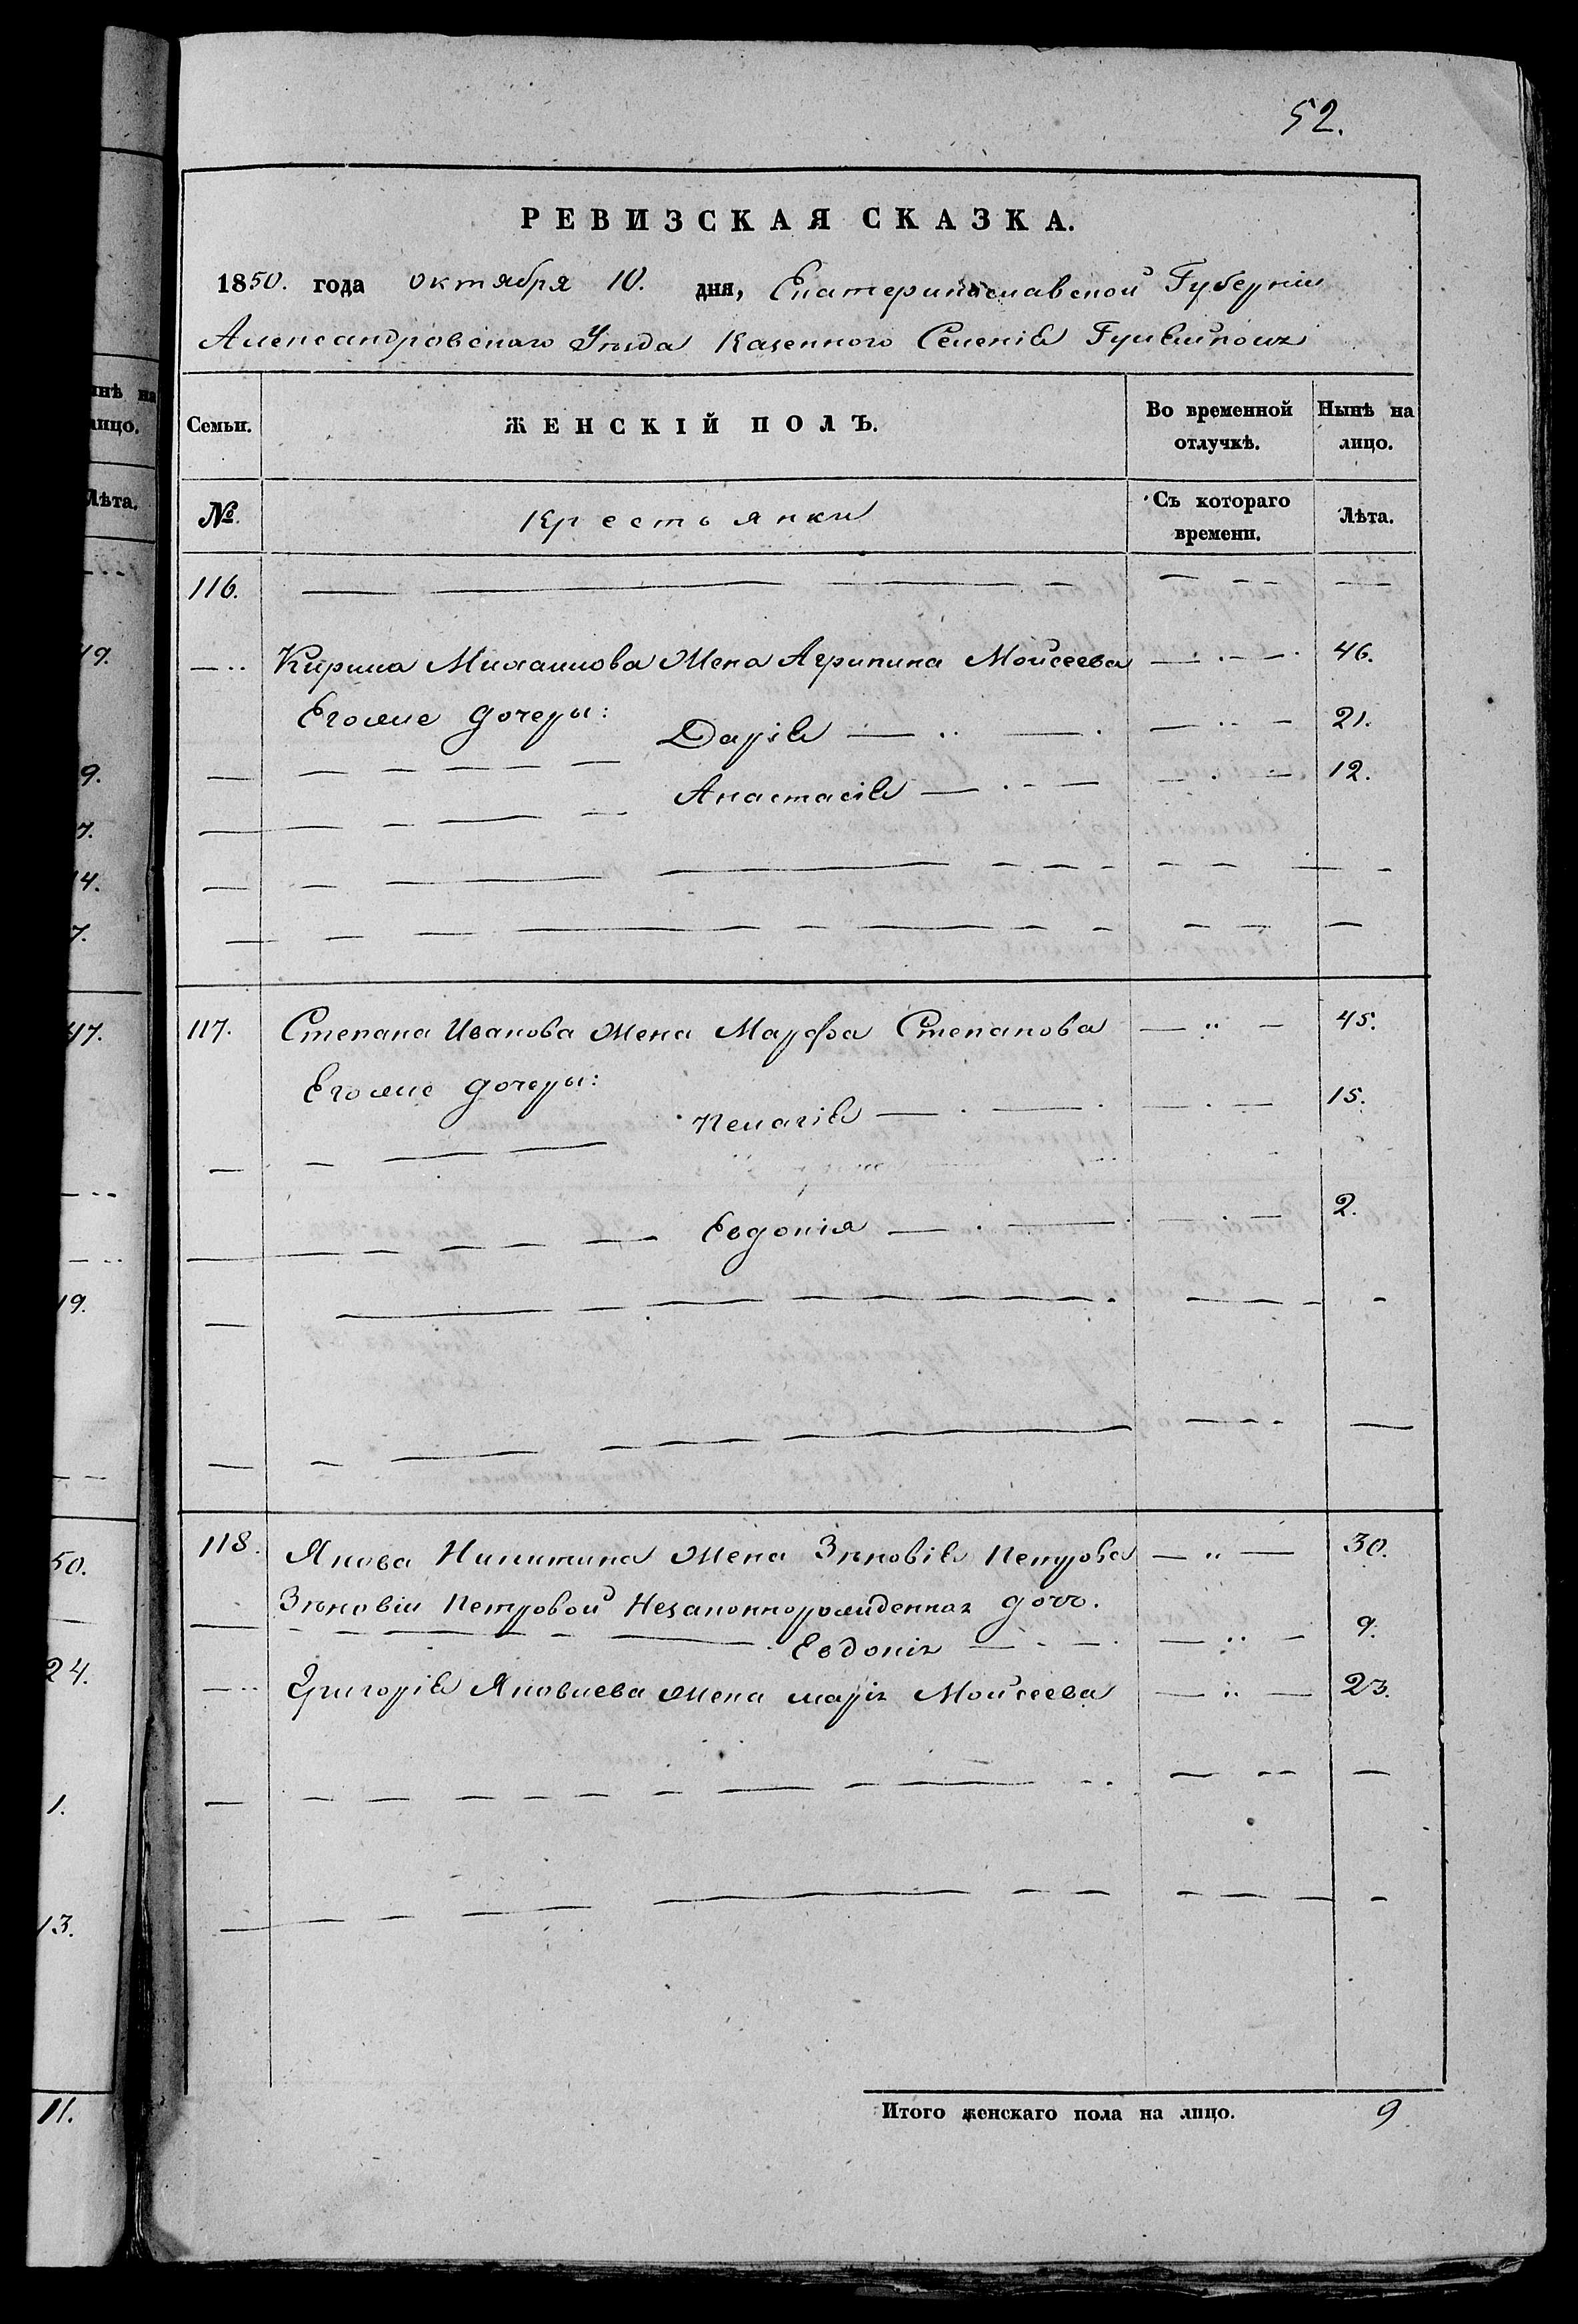 52.
РЕВИЗСКАЯ СКАЗКА.
1850. года октября 10. дня, Екатеринославской Губерніи
Александровскаго Уѣзда Казенного Селенія
Семьи.
ЖЕНСКІЙ ПОЛЪ.
Во временной отлучкѣ.
Нынѣ на лицо.
№.
Крестьянки
Съ котораго времени.
Лѣта.
116.
Кирила Михаилова жена Агрипина Моисеева 46.
Егоже дочери:
Дарія 21.
Анастасія 12.
117. Степана Иванова жена Марфа Степанова 45.
Егоже дочери:
Пелагія 15.
Евдокія 2.
118. Якова Никитина жена Зѣновія Петрова 30.
Зѣновіи Петровой Незаконнорожденная дочь.
Евдокія 9.
Григорія Яковлева жена марія Моисеева 23.
Итого женскаго пола на лицо. 9
инѣ на
лицо.
Лѣта.
49.
9.
7.
14.
7.
47.
19.
50.
24.
1.
13.
11.